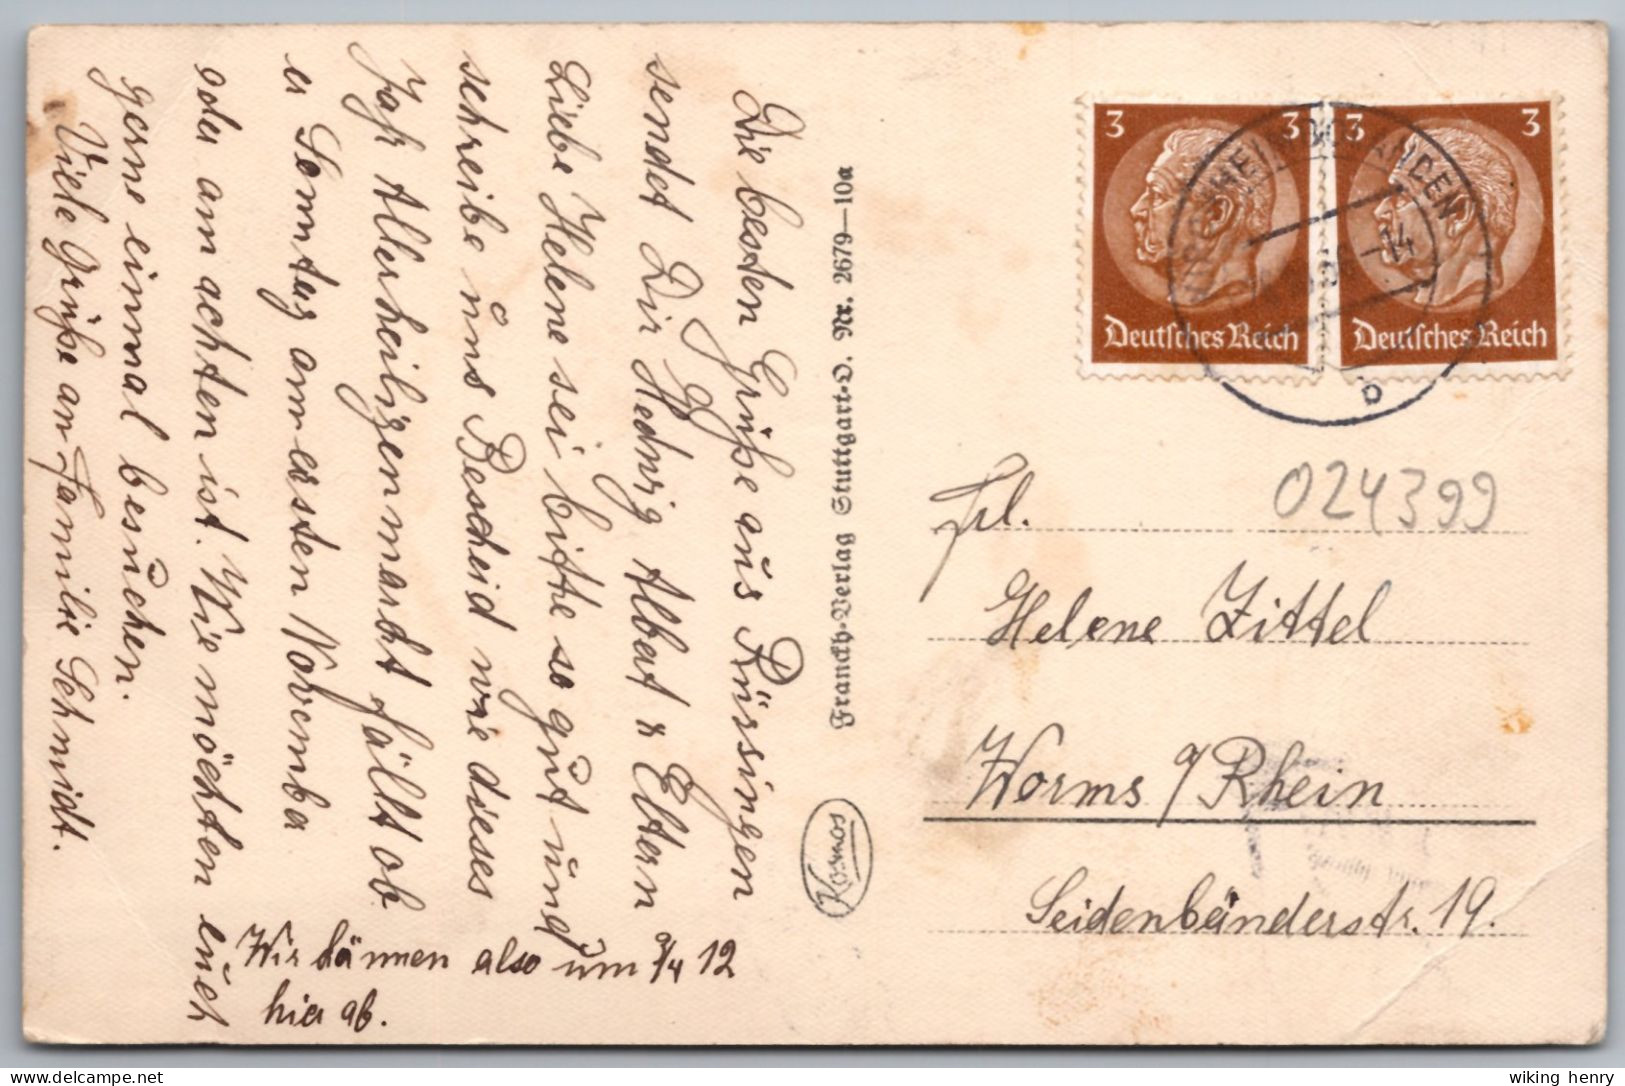 Die besten Grüße aus Rüssingen
sendet Dir Hedwig Albert u Eltern
Liebe Helene sei bitte so gut und
schreibe uns Bescheid wie dieses
Jahr Allerheiligenmarkt fällt ob
er Sonntag am ersten November
oder am achten ist. Wir möchten euch
gerne einmal besuchen.
Viele Grüße an Familie Schmidt.
Wir kämmen also um 3/4 12
hier ab.
Franckh-Verlag Stuttgart-O. Nr. 2679—10a
Kosmos
3 3 3 3
Deutsches Reich Deutsches Reich
-14
b
024399
Frl.
Helene Zittel
Worms a/Rhein
Seidenbänderstr. 19.
wiking henry